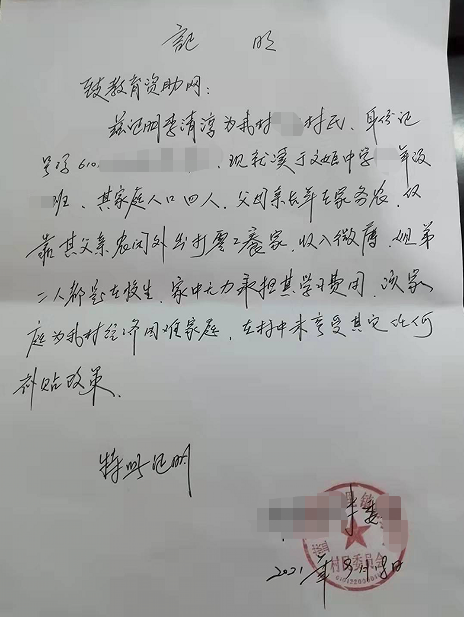 证 明
致教育资助网：
兹证明李清淳为我村 村民、身份证
号码610 ，现就读于文姬中学 年级
班、其家庭人口四人，父母亲长年在家务农，仅
靠其父亲农闲外出打零工养家，收入微薄，姐弟
二人都是在校生，家中无力承担其学习费用，该家
庭为我村经济困难家庭，在村中未享受其它任何
补贴政策、
特此证明
村 委
村 委员会
2021年 月 日